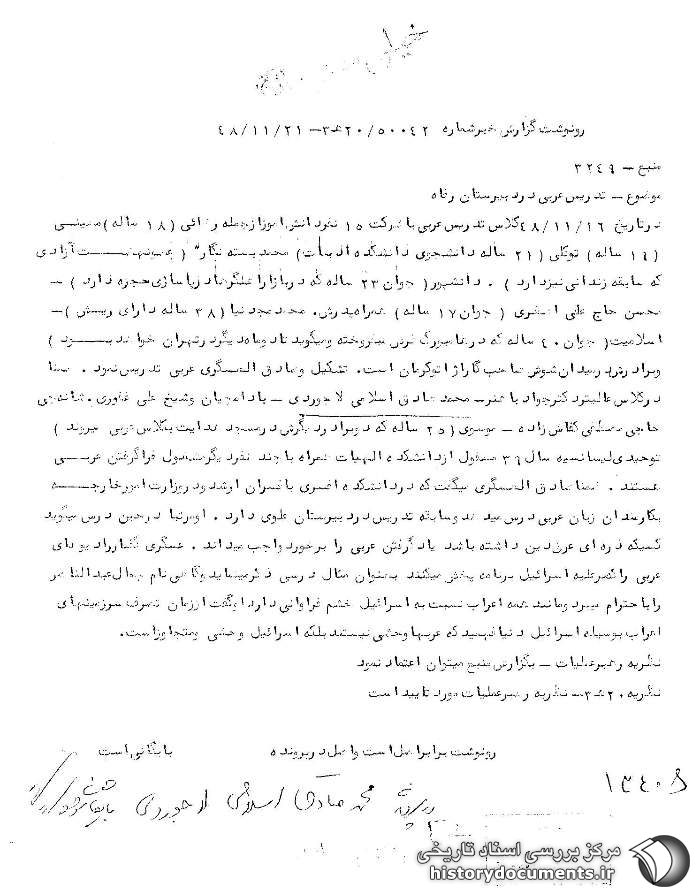 خیلی
رونوشت گزارش خبر شماره ۲۰/۵۰۰۴۲ ﻫ ۳ – ۴۸/۱۱/۲۱
منبع – ۳۲۴۹
موضوع – تدریس عربی در دبیرستان رفاه
در تاریخ ۴۸/۱۱/۱۶ کلاس تدریس عربی با شرکت ۱۵ نفر دانش آموز از جمله رضائی (۱۸ ساله) حسینی
(۱۶ ساله) توکلی (۲۱ ساله دانشجوی دانشکده ادبیات) محمد بسته نگار (جمعیت نهضت آزادی
که سابقه زندانی نیز دارد ) . دانشپور ( جوان ۲۳ ساله که در بازار آهنگرها دریا سازی حجره دارد ) –
محسن حاج علی اصغری ( جوان ۱۷ ساله) همراه پدرش. محمد مجدنیا (۳۸ ساله دارای ریش )–
اسلامیت( جوان ۴۰ ساله که در هامبورگ فرش میفروخته و میگوید تا دو ماه دیگر در تهران خواهد بود )
و برادرش در میدان شوش صاحب گاراژ اتوکرمان است. تشکیل و صادق العسگری عربی تدریس نمود . ضمنا
در کلاس عالیتر دکتر جواد با هنر – محمد صادق اسلامی لاجوردی – بادامچیان و شیخ علی غفوری . شانه چی
حاجی مصطفی کفاش زاده – موسوی ( ۲۵ ساله که دو برادر دیگرش در مسجد هدایت به کلاس عربی میروند )
توحیدی لیسانسیه سال ۳۹ منقول از دانشکده الهیات همراه با چند نفر دیگر مشغول فراگرفتن عربی
هستند . ضمنا صادق العسگری میگفت که در دانشکده افسری با فسران ارشد و در وزارت امور خارجه
بکارمندان زبان عربی درس میدهد و سابقه تدریس در دبیرستان علوی دارد . او مرتبا در حین درس میگوید
کسیکه ذره ای عرق دین داشته باشد یاد گرفتن عربی را بر خود واجب میداند . عسگری گفتار رادیوهای
عربی را که بر علیه اسرائیل برنامه پخش میکنند بعنوان مثال درسی ذکر مینماید و گاهی نام جمال عبدالناصر
را با احترام میبرد و مانند همه اعراب نسبت به اسرائیل خشم فراوانی دارد او گفت از زمان تصرف سرزمینهای
اعراب بوسیله اسرائیل دنیا فهمید که عربها وحشی نیستند بلکه اسرائیل وحشی و متجاوز است.
نظریه رهبر عملیات – بگزارش منبع میتوان اعتماد نمود
نظریه ۲۰ ﻫ ۳ – نظریه رهبر عملیات مورد تایید است
رونوشت برابر اصل است و اصل در پرونده بایگانی است
۱۳۴۰۸
در پرونده محمد صادق اسلامی لاجوردی بایگانی شود
مرکز بررسی اسناد تاریخی
historydocuments.ir